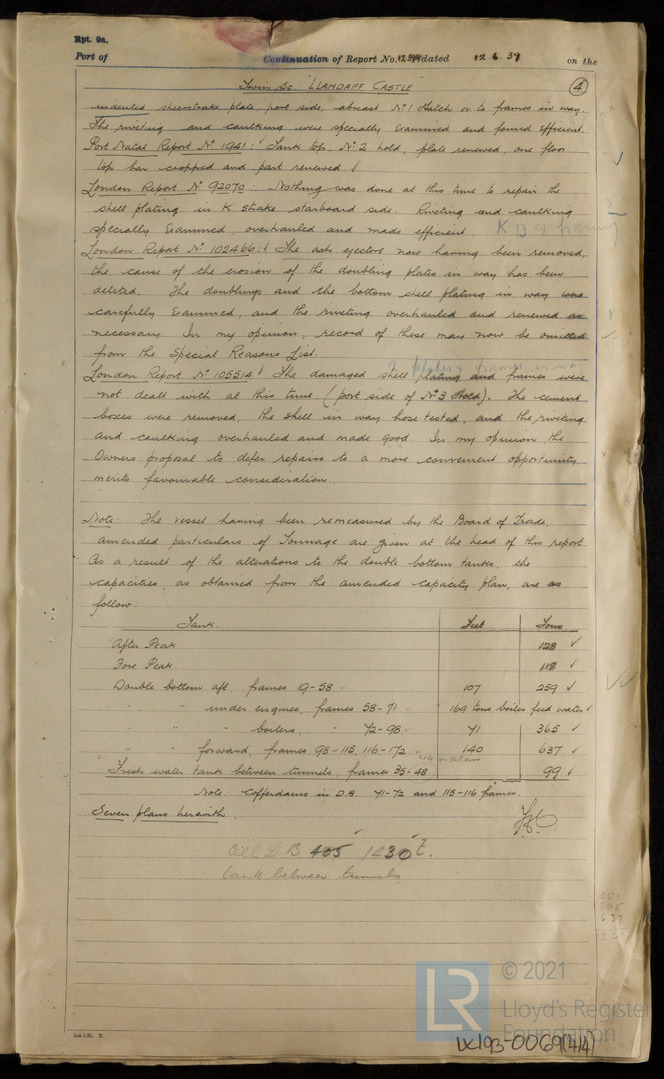 Rpt. 9a.
Port of Continuation of Report No. dated 12.6.39 on the
Twin Sc. "LLANDAFF CASTLE" 4
indented sheerstrake plate, port side, abreast No 1 Hatch or to frames in way.
The riveting and caulking were specially Examined and found Efficient.
Port Natal Report No 1941: Tank top, No 2 hold, plate renewed, one floor
top bar cropped and part renewed √
London Report No 92070: Nothing was done at this time to repair the
shell plating in K strake starboard side. Riveting and caulking
specially Examined, overhauled and made efficient.
London Report No 102466: √ The ash ejectors now having been removed,
the cause of the erosion of the doubling plates in way has been
deleted. The doublings and the bottom shell plating in way were
carefully Examined, and the riveting overhauled and renewed as
necessary. In my opinion, record of these may now be omitted
from the Special Reasons List.
London Report No 105514 √ The damaged shell plating and frames were
not dealt with at this time. (port side of No 3 Hold). The cement
boxes were removed, the shell in way hose tested, and the riveting
and caulking overhauled and made good. In my opinion the
Owners proposal to defer repairs to a more convenient opportunity,
merits favourable consideration.
Note: The vessel having been remeasured by the Board of Trade,
amended particulars of Tonnage are given at the head of this report
As a result of the alterations to the double bottom tanks, the
capacities, as obtained from the amended capacity plan, are as
follow:
Tank. Feet Tons
After Peak 128 √
Fore Peak 118 √
Double bottom aft, frames 19-58 107 259 √
" " under engines, frames 58-71 169 tons boiler feed water √
" " " boilers, " 72-98 71 365 √
" " forward, frames 98-115, 116-172 140 637 √
Fresh water tank between tunnels, frames 35-48 99 √
Note: Cofferdams in D.B. 71-72 and 115-116 frames.
Seven plans herewith.
1430t.
tank between tunnels
637
© 2021
LR
Lloyd's Register
Foundation
LX193-0069(4/4)